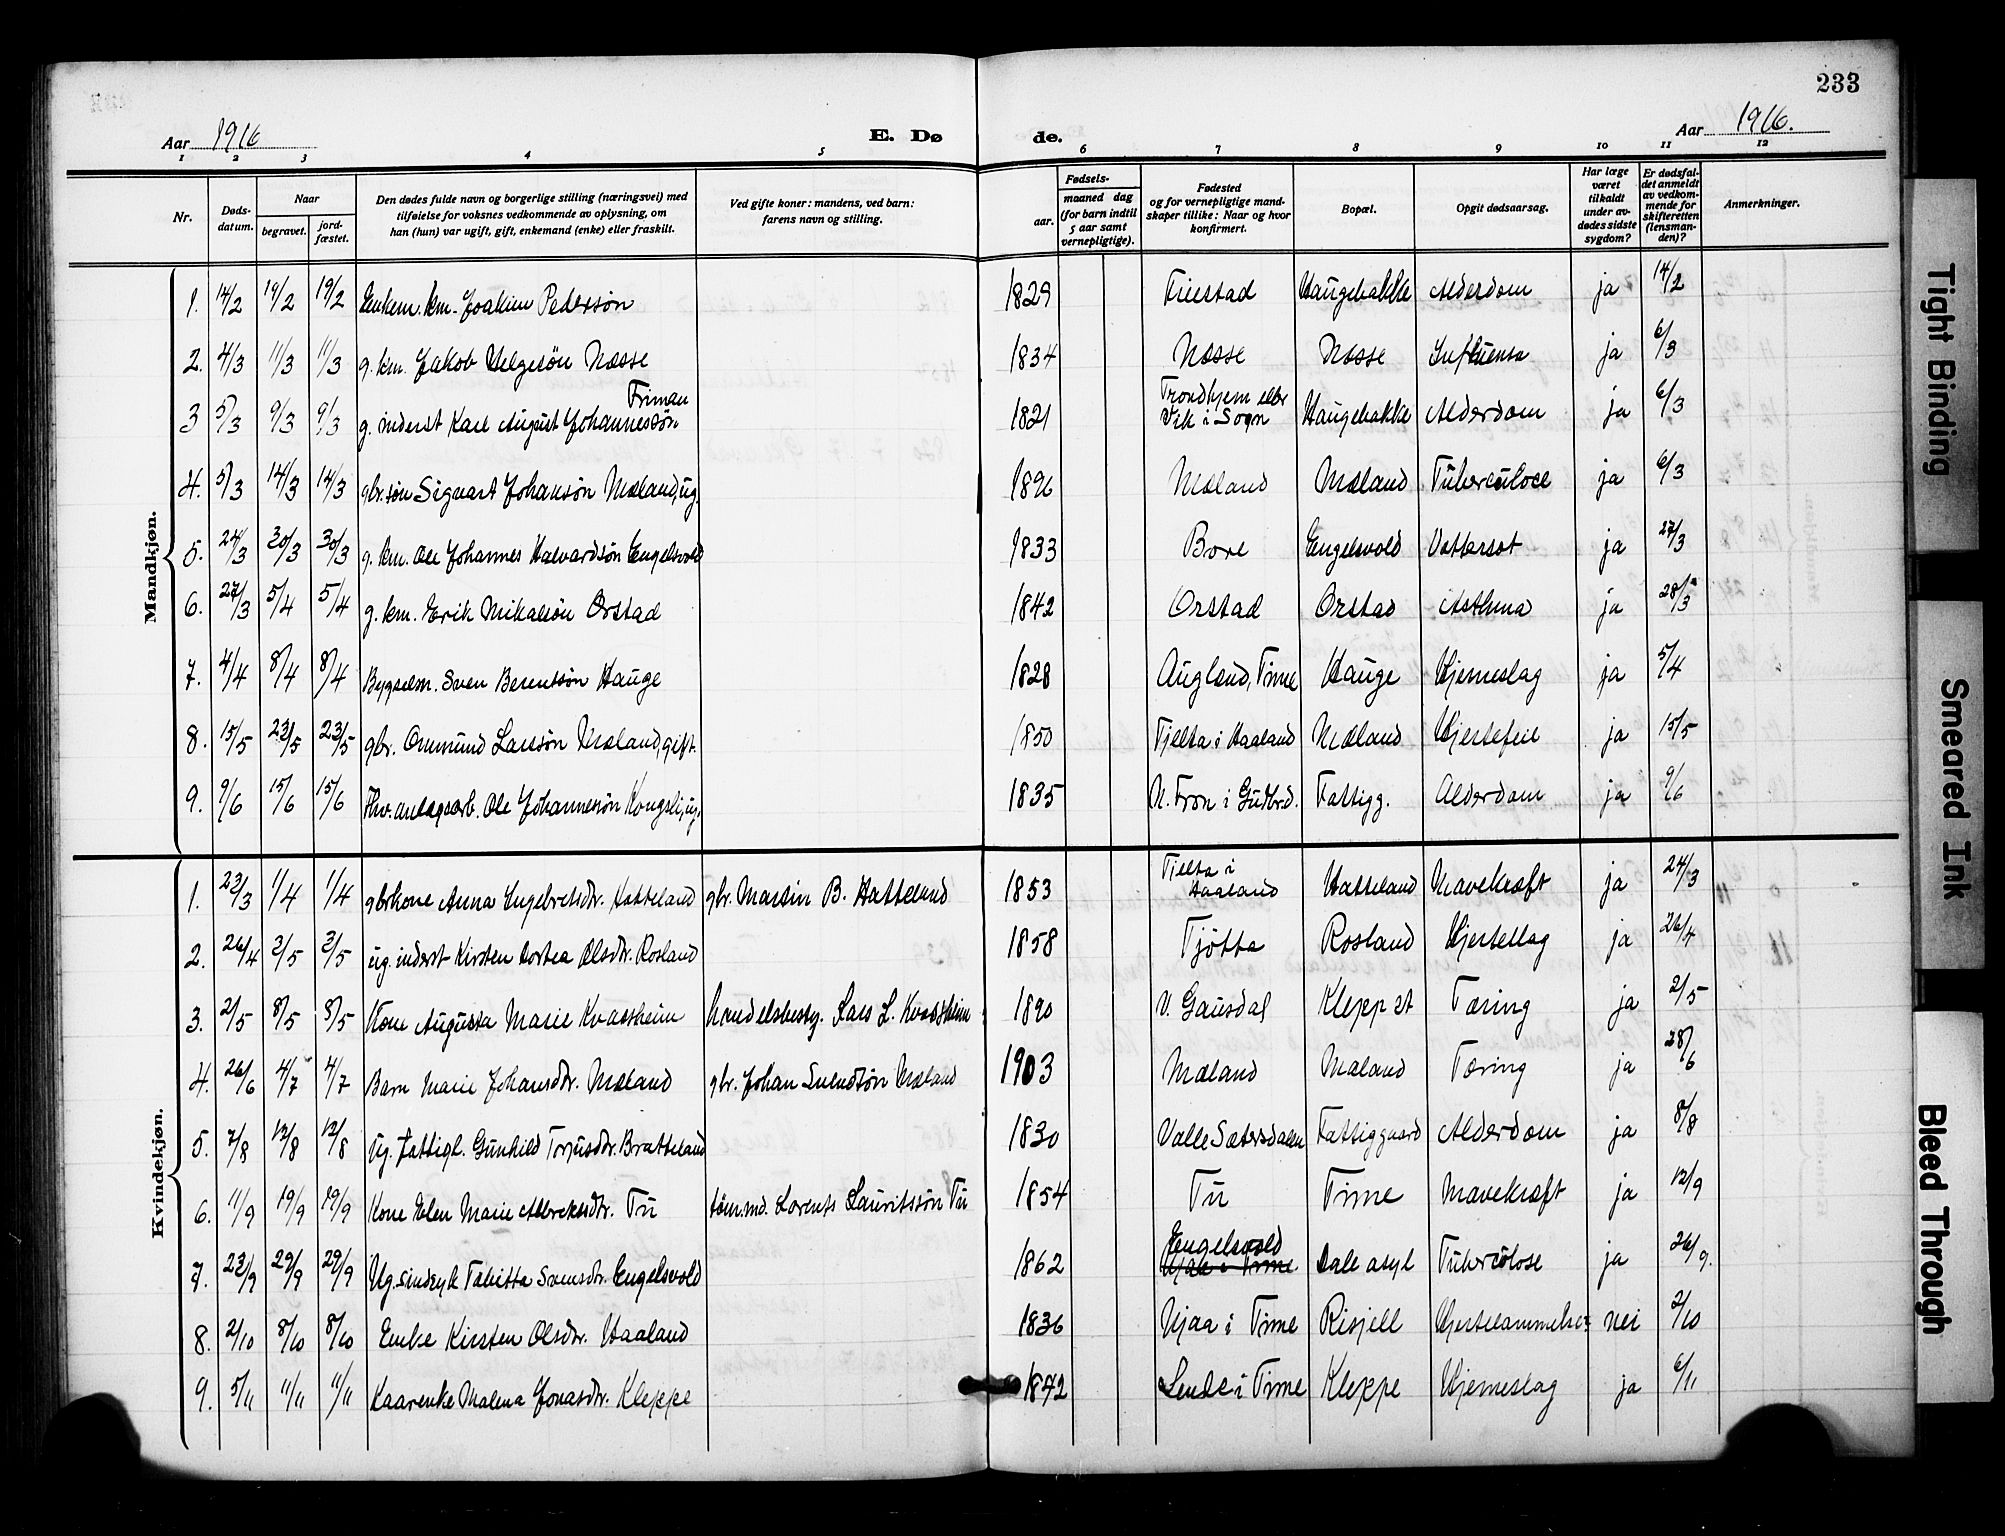 233
Aar 1916
E. Dø
de.
Aar 1916.
1 2 3 4 5 6 7 8 9 10 11 12
Nr.
Døds-
datum.
Naar
begravet.
jord-
fæstet.
Den dødes fulde navn og borgerlige stilling (næringsvei) med
tilføielse for voksnes vedkommende av oplysning, om
han (hun) var ugift, gift, enkemand (enke) eller fraskilt.
Ved gifte koner: mandens, ved barn:
farens navn og stilling.
Fødsels-
aar.
maaned dag
(for barn indtil
5 aar samt
vernepligtige).
Fødested
og for vernepligtige mand-
skaper tillike: Naar og hvor
konfirmert.
Bopæl.
Opgit dødsaarsag.
Har læge
været
tilkaldt
under av-
dødes sidste
sygdom?
Er dødsfal-
det anmeldt
av vedkom-
mende for
skifteretten
(lensman-
den)?
Anmerkninger.
Mandkjøn.
1. 14/2 19/2 19/2 Enkem. km. Joakim Pedersøn 1829 Tiestad Haugebakke Alderdom ja 14/2
2. 4/3 11/3 11/3 g. km. Jakob Helgesøn Næsse 1834 Næsse Næsse Influensa ja 6/3
Friman
3 5/3 9/3 9/3 g. inderst Karl August Johannessøn 1821 Trondhjem eller Vik i Sogn Haugebakke Alderdom ja 6/3
4. 5/3 14/3 14/3 gbr.søn Sigvart Johansøn Mæland, ug. 1896 Mæland Mæland Tuberculose ja 6/3
5. 24/3 30/3 30/3 g. km. Ole Johannes Halvardsøn Engelsvold 1833 Bore Engelsvold Vattersot ja 27/3
6. 27/3 5/4 5/4 g. km. Erik Mikalsøn Orstad 1842 Orstad Orstad Asthma ja 28/3
7. 4/4 8/4 8/4 Bygselm. Sven Berentsøn Hauge 1828 Augland, Time Hauge Hjerneslag ja 5/4
8. 15/5 23/5 23/5 gbr. Ommund Larsøn Mæland, gift. 1850 Tjelta i Haaland Mæland Hjertefeil ja 15/5
9. 9/6 15/6 15/6 Fhv. anlægsarb. Ole Johannessøn Kongsli, ug. 1835 N. Fron i Gudbrd. Fattigg. Alderdom ja 9/6
Kvindekjøn.
1. 23/3 1/4 1/4 gbrkone Anna Engebretsdtr. Hatteland gbr. Martin B. Hatteland 1853 Tjelta i Haaland Hatteland Mavekræft ja 24/3
2. 26/4 3/5 3/5 ug. inderst Kirsten Dortea Olsdtr. Rosland 1858 Tjøtta Rosland Hjerteslag ja 26/4
3. 2/5 8/5 8/5 Kone Augusta Marie Kvassheim handelsbesty. Lars L. Kvassheim 1890 V. Gausdal Klepp st Tæring ja 2/5
4. 26/6 4/7 4/7 Barn Marie Johansdtr. Mæland gbr. Johan Svendsøn Mæland 1903 Mæland Mæland Tæring ja 28/6
5. 7/8 12/8 12/8 Ug. fattigl. Gunhild Torjusdtr. Bratteland 1830 Valle Sætersdalen Fattiggaard Alderdom ja 8/8
6. 11/9 19/9 19/9 Kone Elen Marie Albrektsdtr. Tu tøm.md. Lorents Lauritssøn Tu 1854 Tu Time Mavekræft ja 12/9
7. 23/9 29/9 29/9 Ug. sindsyk Tabitta Svensdtr. Engelsvold 1862 Engelsvold Njaa i Time Dale asyl Tuberculose ja 26/9.
8. 2/10 8/10 8/10 Enke Kirsten Olsdtr. Haaland 1836 Njaa i Time Risjell Hjertelammelse nei 2/10
9. 5/11 11/11 11/11 Kaarenke Malena Jonasdtr. Kleppe 1872 Lende i Time Kleppe Hjerneslag ja 6/11
Tight Binding
Smeared Ink
Bleed Through